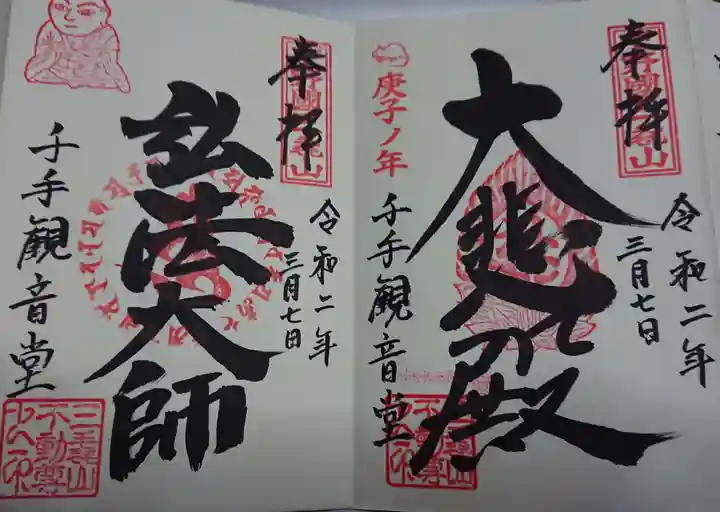 奉拝
大悲殿
令和二年
三月七日
庚子ノ年
千手観音堂
奉拝
弘法大師
令和二年
三月七日
千手観音堂
三毳山
不動尊